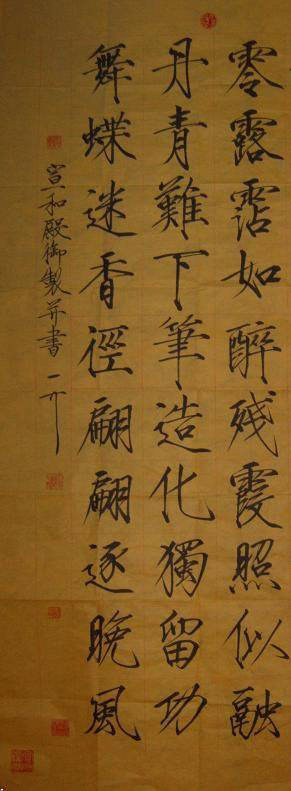 零露霑如醉残霞照似融
丹青難下筆造化獨留功
舞蝶迷香徑翩翩逐晚風
宣和殿御製并書